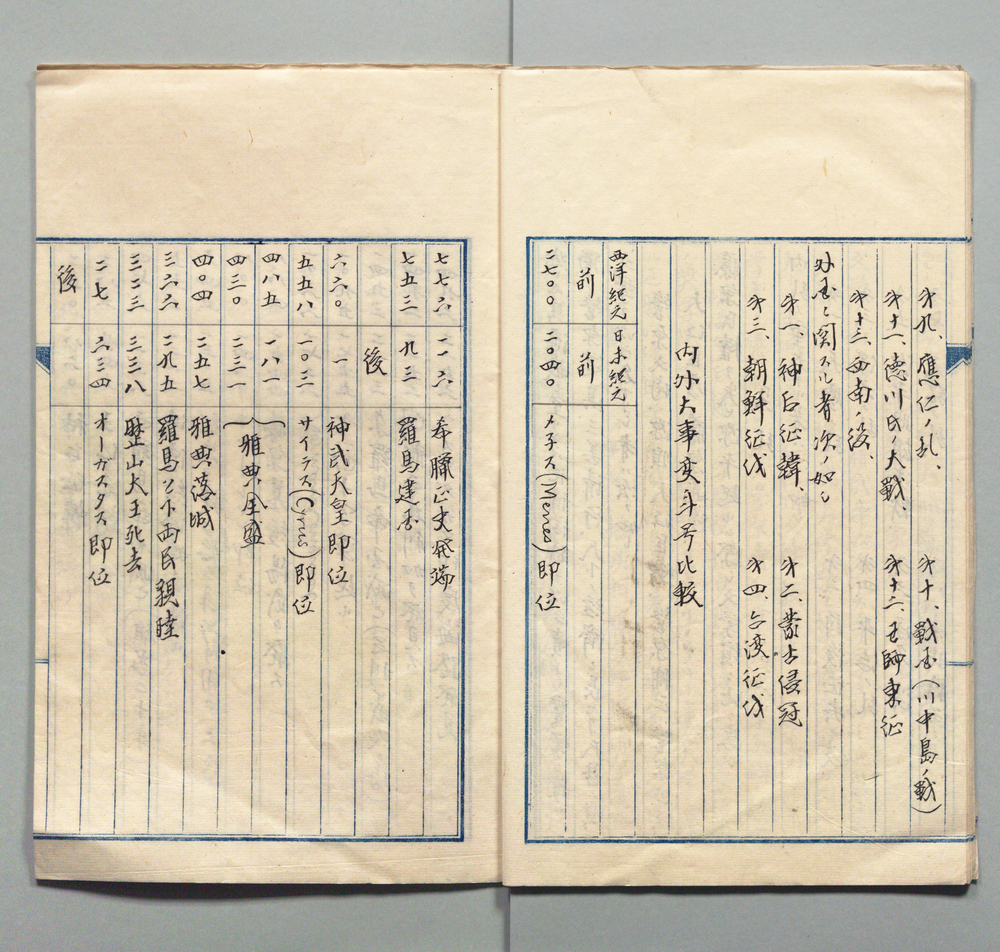 第九、應仁ノ乱、　第十、戰国(川中島ノ戰)
第十一、德川氏ノ大戰、　第十二、王師東征
第十三、西南ノ役、
外国ニ関スル者次ノ如シ
第一、神后征韓、　第二、蒙古侵冠
第三、朝鮮征伐　第四、台湾征伐
内外大事変年号比較
西洋紀元　日本紀元
前　前
二七〇〇　二〇四〇　メ子ス(Menes)即位
七七六　一一六　希臘正史発端
七五三　九三　羅馬建国
後
六六〇　一　神武天皇即位
五五八　一〇三　サイラス(Cyrus)即位
四八五　一八一
四三〇　二三一　雅典全盛
四〇四　二五七　雅典落城
三六六　二九五　羅馬公仆両民親睦
三二三　三三八　歴山大王死去
二七　六三四　オーガスタス即位
後